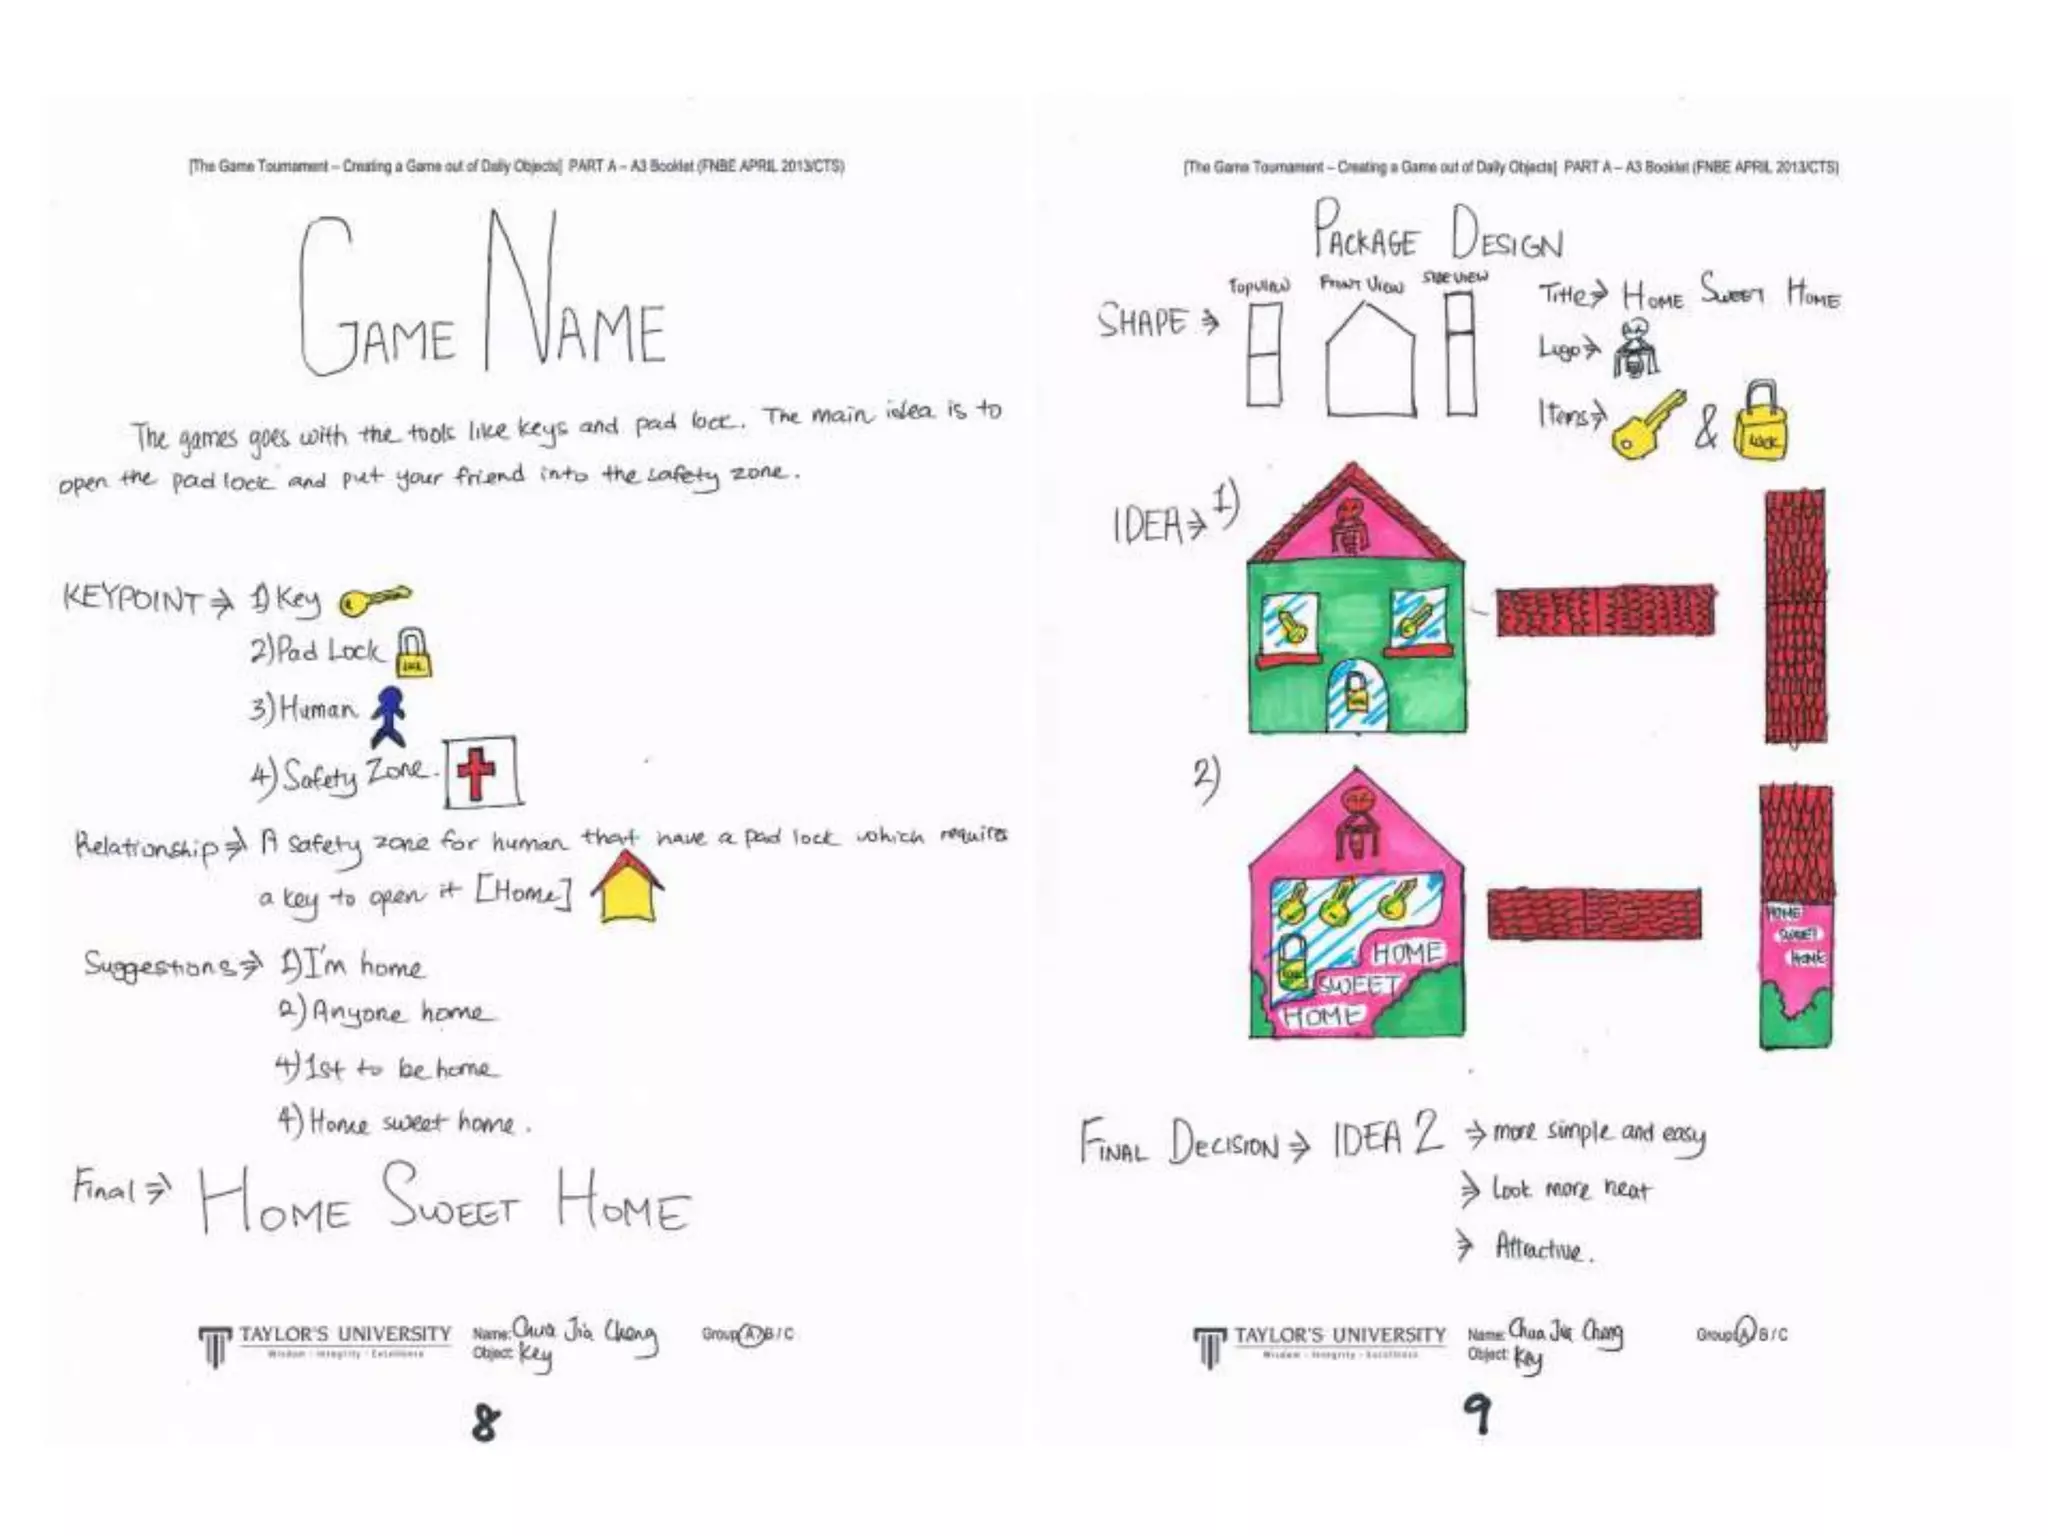 [The Game Tournament – Creating a Game out of Daily Objects] PART A – A3 Booklet (FNBE APRIL 2013/CTS)
GAME NAME
The games goes with the tools like keys and pad lock. The main idea is to
open the pad lock and put your friend into the safety zone.
KEYPOINT ⇒ 1) Key
2) Pad Lock
LOCK
3) Human
4) Safety Zone.
Relationship ⇒ A safety zone for human that have a pad lock which requires
a key to open it [Home]
Suggestions ⇒ 1) I'm home
2) Anyone home
4) 1st to be home
4) Home sweet home.
Final ⇒ HOME SWEET HOME
TAYLOR'S UNIVERSITY
Wisdom · Integrity · Excellence
Name: Chua Jia Cheng
Object: Key
Group A / B / C
8
[The Game Tournament – Creating a Game out of Daily Objects] PART A – A3 Booklet (FNBE APRIL 2013/CTS)
PACKAGE DESIGN
SHAPE ⇒
TOP VIEW
FRONT VIEW
SIDE VIEW
Title ⇒ HOME SWEET HOME
Logo ⇒
Items ⇒ &
LOCK
IDEA ⇒ 1)
2)
HOME
SWEET
HOME
HOME
SWEET
HOME
FINAL DECISION ⇒ IDEA 2 ⇒ more simple and easy
⇒ Look more neat
⇒ Attractive.
TAYLOR'S UNIVERSITY
Wisdom · Integrity · Excellence
Name: Chua Jia Cheng
Object: Key
Group A / B / C
9